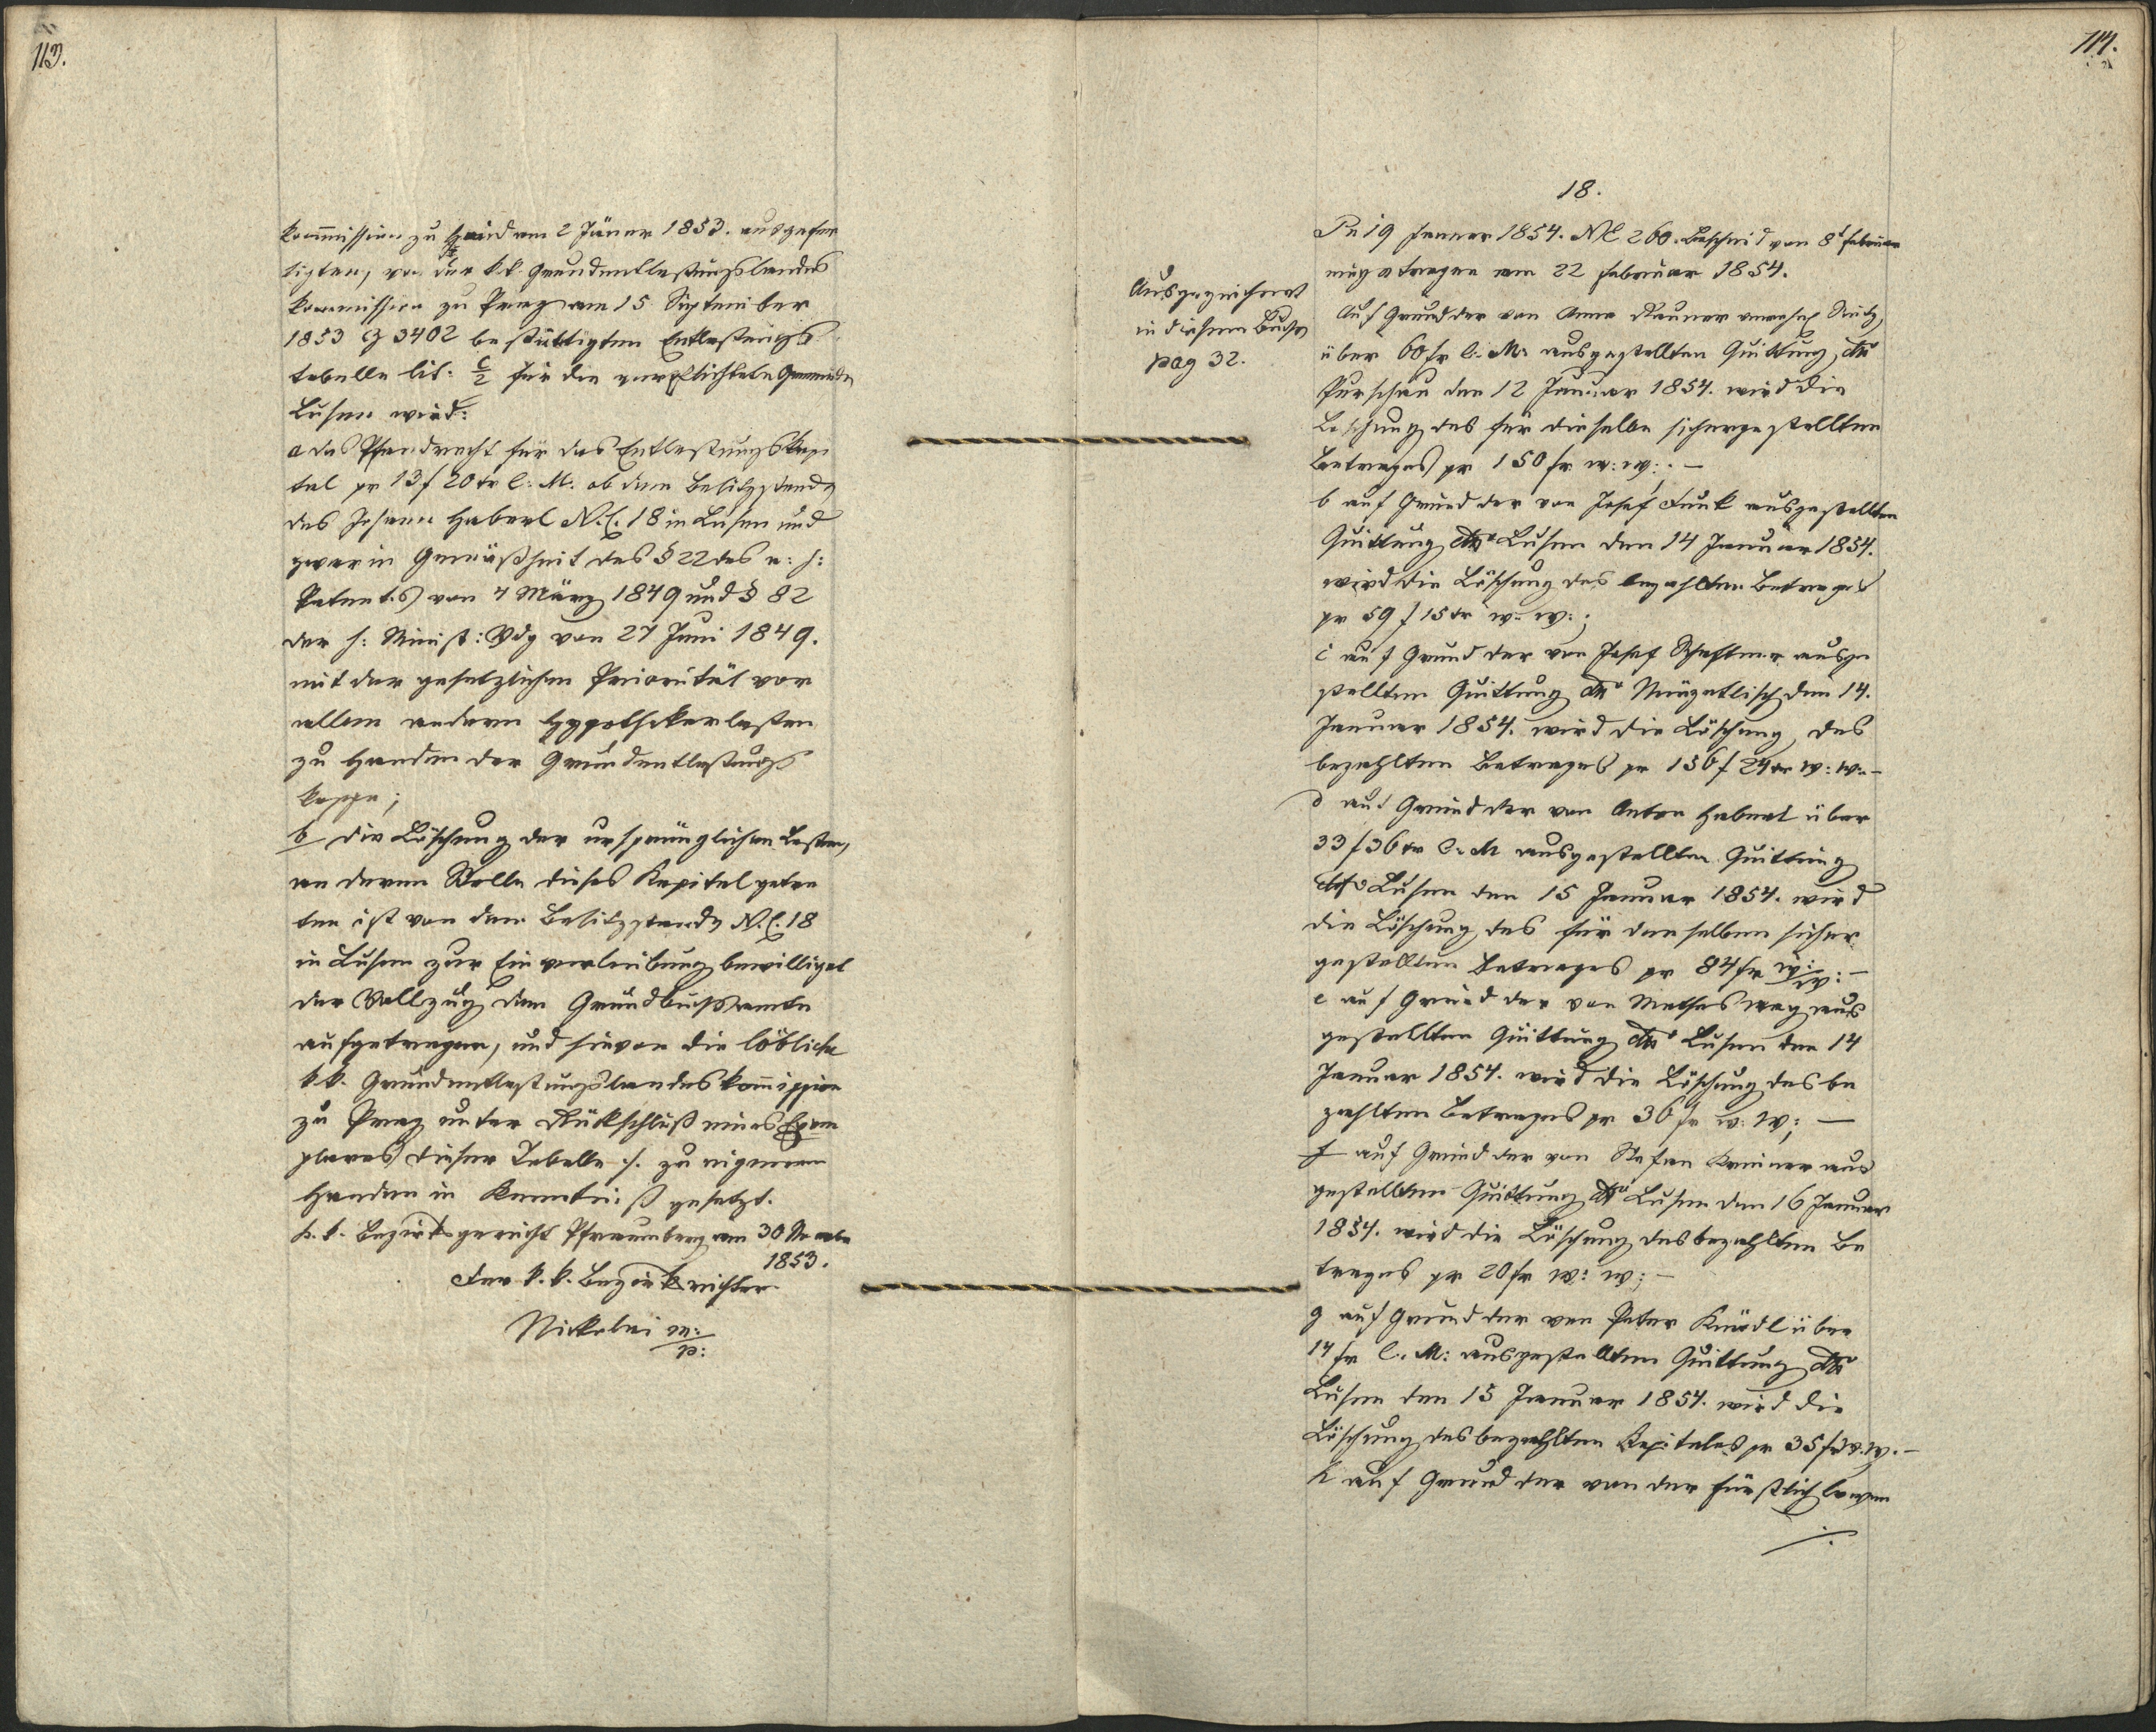 113.
kommission zu Haid am 2 Jäner 1853. ausgefer
tigten, von der k.k. Grundentlastungslandes
kommission zu Prag am 15 September
1853 Z 3402 bestättigten Entlastungs
tabelle lit: C/2 für die verpflichtete Gemeinde
Lusen wird:
a das Pfandrecht für das Entlastungskapi
tal pr 13 f 20 kr C: M: ob dem Besitzstande
des Johann Haberl N.C. 18 in Lusen und
zwar in Gemäßheit des § 22 des a: h:
Patentes vom 4 März 1849 und § 82
der h: Minist: Vdg vom 27 Juni 1849.
mit der gesetzlichen Priorität vor
allen andern Hypothekarlasten
zu Handen der Grundentlastungs
kasse;
b die Löschung der ursprünglichen Lasten,
an deren Stelle dieses Kapital getre
ten ist von dem Besitzstande N.C. 18
in Lusen zur Einverleibung bewilliget
der Vollzug dem Grundbuchsamte
aufgetragen, und hievon die löbliche
k.k. Grundentlastungslandeskommission
zu Prag unter Rückschluß eines Exem
plares dieser Tabelle ./. zu eigenen
Handen in Kenntniß gesetzt.
K. k. Bezirksgericht Pfraumberg am 30 Novembr
1853.
Der k. k. Bezirksrichter
Nickolai m:
p:
114.
18.
Pr 19 Jenner 1854. NE 260. Bescheid vom 8t Februar
eingetragen am 22 Februar 1854.
Ausgezeichnet
in diesem Buche
pag 32.
Auf Grund der von Anna Rauner verehel
über 60 fr C: M: ausgestellten Quittung dto
Purschau den 12 Januar 1854. wird die
Löschung des für dieselbe sichergestellten
Betrages pr 150 fr w: w:. —
b auf Grund der von Josef Funk ausgestellten
Quittung dto Lusen den 14 Januar 1854.
wird die Löschung des bezahlten Betrages
pr 59 f 15 kr w: w:;
c auf Grund der von Josef ausge
stellten Quittung dto den 14.
Januar 1854. wird die Löschung des
bezahlten Betrages pr 156 f 24 kr w: w: —
d auf Grund der von Anton Haberl über
33 f 36 kr C: M ausgestellten Quittung
dto Lusen den 15 Januar 1854. wird
die Löschung des für denselben sicher
gestellten Betrages pr 84 fr w: w: —
e auf Grund der von Mathes aus
gestellten Quittung dto Lusen den 14
Januar 1854. wird die Löschung des be
zahlten Betrages pr 36 fr w: w; —
f auf Grund der von Stefan aus
gestellten Quittung dto Lusen den 16 Januar
1854. wird die Löschung des bezahlten Be
trages pr 20 fr w: w; —
g auf Grund der von Peter über
14 fr C: M: ausgestellten Quittung dto
Lusen den 15 Januar 1854. wird die
Löschung des bezahlten Kapitales pr 35 fr w. w. —
h auf Grund der von der fürstlich Löwen
./.